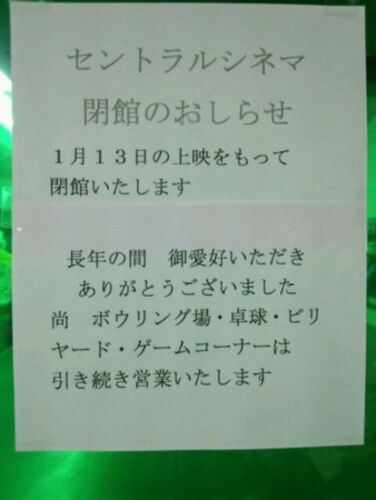 セントラルシネマ
閉館のおしらせ
１月１３日の上映をもって
閉館いたします
長年の間　御愛好いただき
ありがとうございました
尚　ボウリング場・卓球・ビリ
ヤード・ゲームコーナーは
引き続き営業いたします